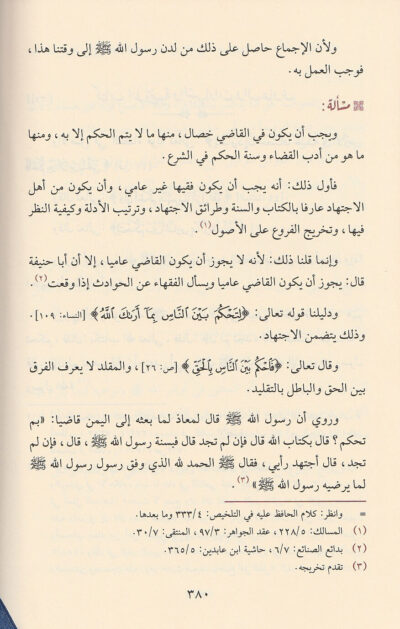 ولأن الإجماع حاصل على ذلك من لدن رسول الله ﷺ إلى وقتنا هذا ،
فوجب العمل به .
مسألة :
ويجب أن يكون في القاضي خصال ، منها ما لا يتم الحكم إلا به ، ومنها
ما هو من أدب القضاء وسنة الحكم في الشرع .
فأول ذلك : أنه يجب أن يكون فقيها غير عامي ، وأن يكون من أهل
الاجتهاد عارفا بالكتاب والسنة وطرائق الاجتهاد ، وترتيب الأدلة وكيفية النظر
فيها ، وتخريج الفروع على الأصول(١) .
وإنما قلنا ذلك : لأنه لا يجوز أن يكون القاضي عاميا ، إلا أن أبا حنيفة
قال : يجوز أن يكون القاضي عاميا ويسأل الفقهاء عن الحوادث إذا وقعت(٢) .
ودليلنا قوله تعالى : ﴿لِتَحْكُمَ بَيْنَ النَّاسِ بِمَآ أَرَىٰكَ اللَّهُ﴾ [النساء : ١٠٩] .
وذلك يتضمن الاجتهاد .
وقال تعالى : ﴿فَاحْكُم بَيْنَ النَّاسِ بِالْحَقِّ﴾ [ص : ٢٦] ، والمقلد لا يعرف الفرق
بين الحق والباطل بالتقليد .
وروي أن رسول الله ﷺ قال لمعاذ لما بعثه إلى اليمن قاضيا : «بم
تحكم ؟ قال بكتاب الله قال فإن لم تجد قال فبسنة رسول الله ﷺ ، قال ، فإن لم
تجد ، قال أجتهد رأيي ، فقال ﷺ الحمد لله الذي وفق رسول رسول الله ﷺ
لما يرضيه رسول الله ﷺ» (٣) .
= وانظر : كلام الحافظ عليه في التلخيص : ٣٣٣/٤ وما بعدها .
(١) المسالك : ٢٢٨/٥ ، عقد الجواهر : ٩٧/٣ ، المنتقى : ٣٠/٧ .
(٢) بدائع الصنائع : ٦/٧ ، حاشية ابن عابدين : ٣٦٥/٥ .
(٣) تقدم تخريجه .
٣٨٠